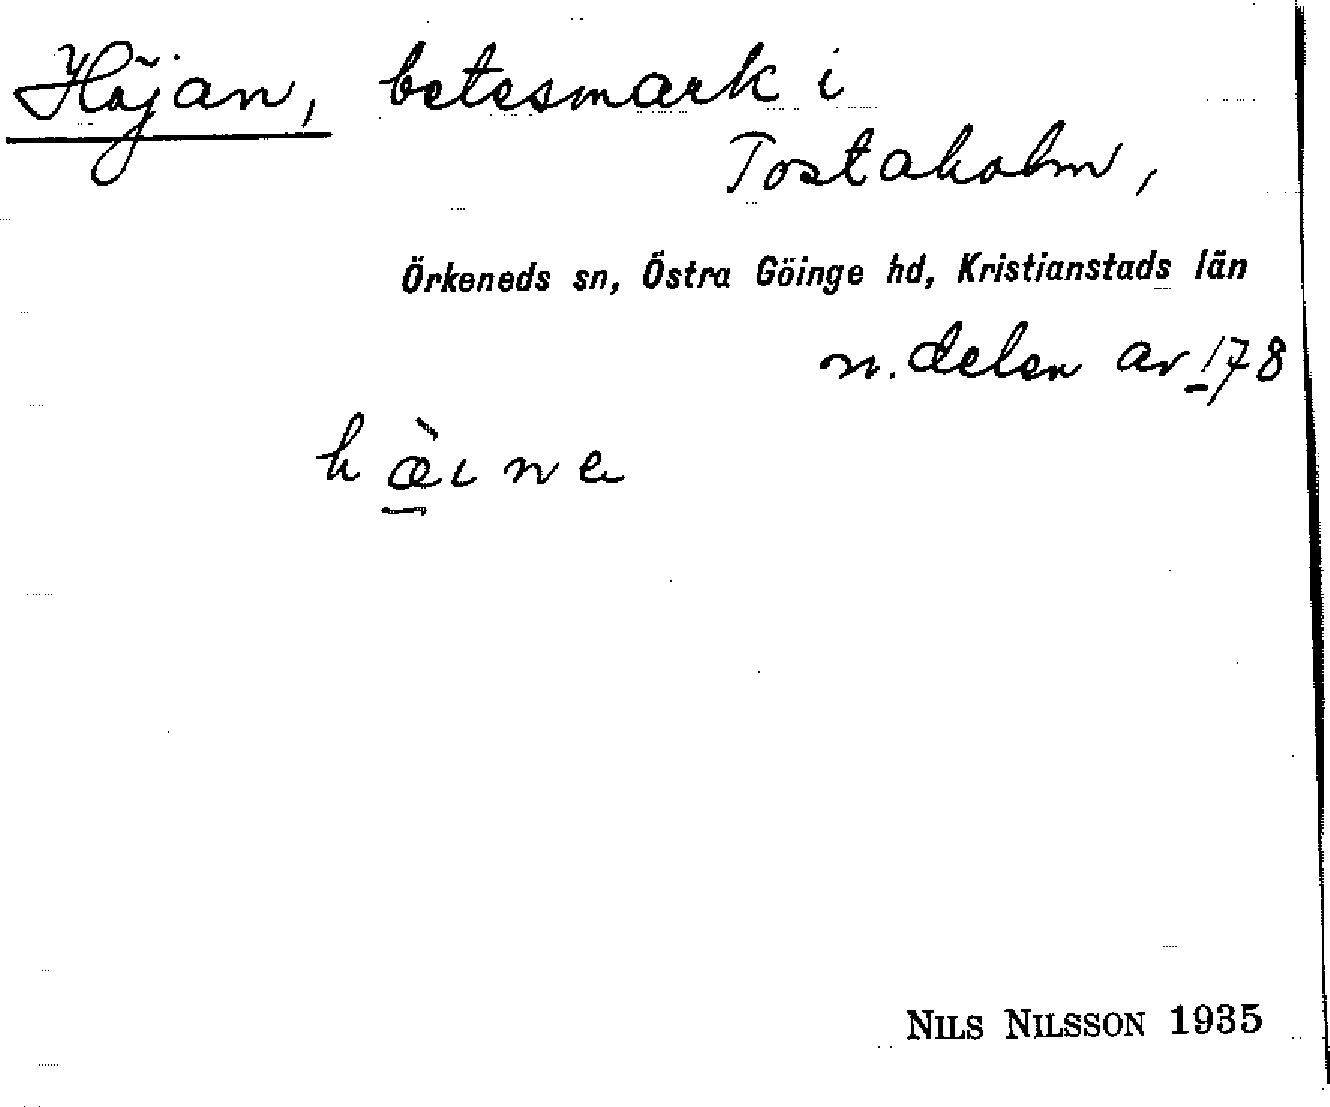 Höjan, betesmark i
Tostaholm,
Örkeneds sn, Östra Göinge hd, Kristianstads län
n. delen av 178
hœ̠̀ɩna
NILS NILSSON 1935